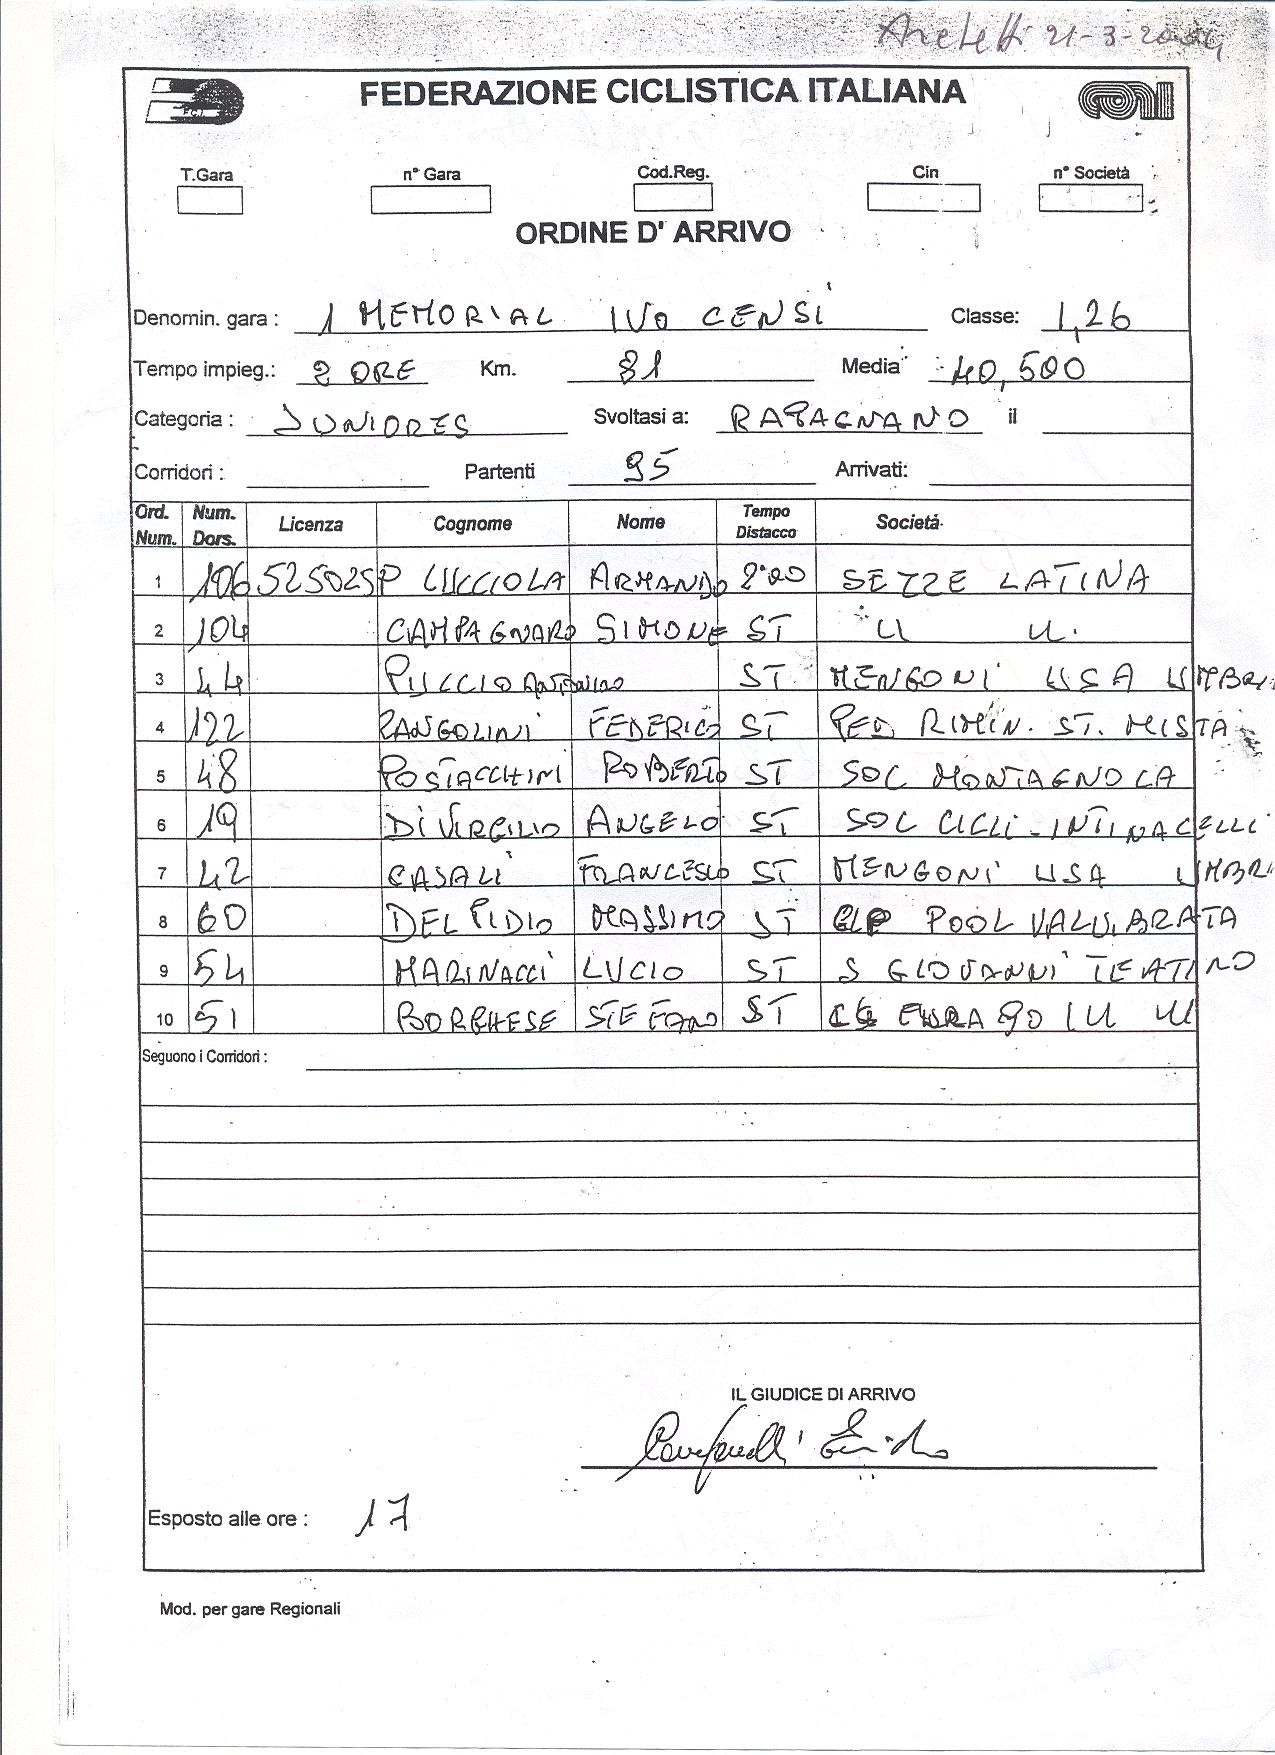 21-3-2004
FEDERAZIONE CICLISTICA ITALIANA
F.C.I.
CONI
T.Gara n° Gara Cod.Reg. Cin n° Società
ORDINE D' ARRIVO
Denomin. gara : 1 MEMORIAL IVO CENSI Classe: 1,26
Tempo impieg.: 2 ORE Km. 81 Media 40,500
Categoria : JUNIORES Svoltasi a: RAPAGNANO il
Corridori : Partenti 95 Arrivati:
Ord. Num. Num. Dors. Licenza Cognome Nome Tempo Distacco Società
1 106 525025P LUCCIOLA ARMANDO 2°00 SEZZE LATINA
2 104 CAMPAGNARO SIMONE ST U U.
3 44 PUCCIO ANTONINO ST MENGONI USA UMBRI
4 122 ZANGOLINI FEDERICO ST PED RIMIN. ST. MISTA
5 48 POSTACCHINI ROBERTO ST SOC MONTAGNOLA
6 19 DI VIRGILIO ANGELO ST SOC CICLI
7 42 CASALI FRANCESCO ST MENGONI USA UMBRI
8 60 DEL PIDIO MASSIMO ST POOL
9 54 MARINACCI LUCIO ST S GIOVANNI TEATINO
10 51 BORGHESE STEFANO ST
Seguono i Corridori :
IL GIUDICE DI ARRIVO
Esposto alle ore : 17
Mod. per gare Regionali